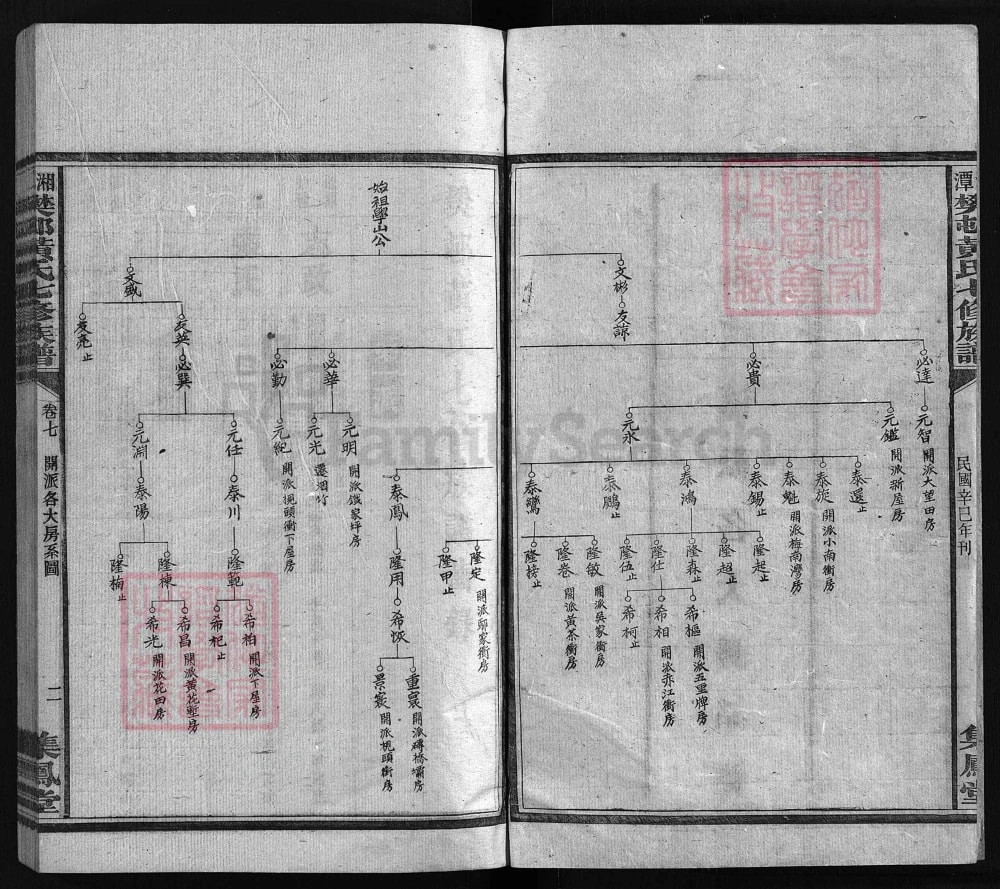 潭 樊屯黃氏七修族譜
民國辛巳年刊
集鳳堂
始祖學山公
文彬
友諒
必達
元智 開派大望田房
必貴
元鑑 開派新屋房
元永
泰選止
泰旋 開派小南衝房
泰魁 開派梅南灣房
泰錫止
泰鴻
泰鵬止
泰鸞
隆起止
隆超止
隆森止
隆仕
隆伍止
隆敏 開派吳家衝房
隆卷 開派黃茶衝房
隆撈止
希樞 開派五里牌房
希相 開派赤江衝房
希柯止
泰鳳
隆定 開派鄔家衝房
隆甲止
隆用
希恢
重寰 開派磚橋壩房
景寰 開派桃頭衝房
必華
元明 開派鐵家坪房
元光 遷湘竹
必勤
元紀 開派桃頭衝下屋房
文盛
友英
必巽
元仕
泰川
隆範
希柏 開派下屋房
希杞止
元淵
泰陽
隆棟
希昌 開派黃花塹房
希光 開派花田房
隆楠止
友亮止
湘 樊邨黃氏七修族譜
卷七
開派各大房系圖
二
集鳳堂
FamilySearch